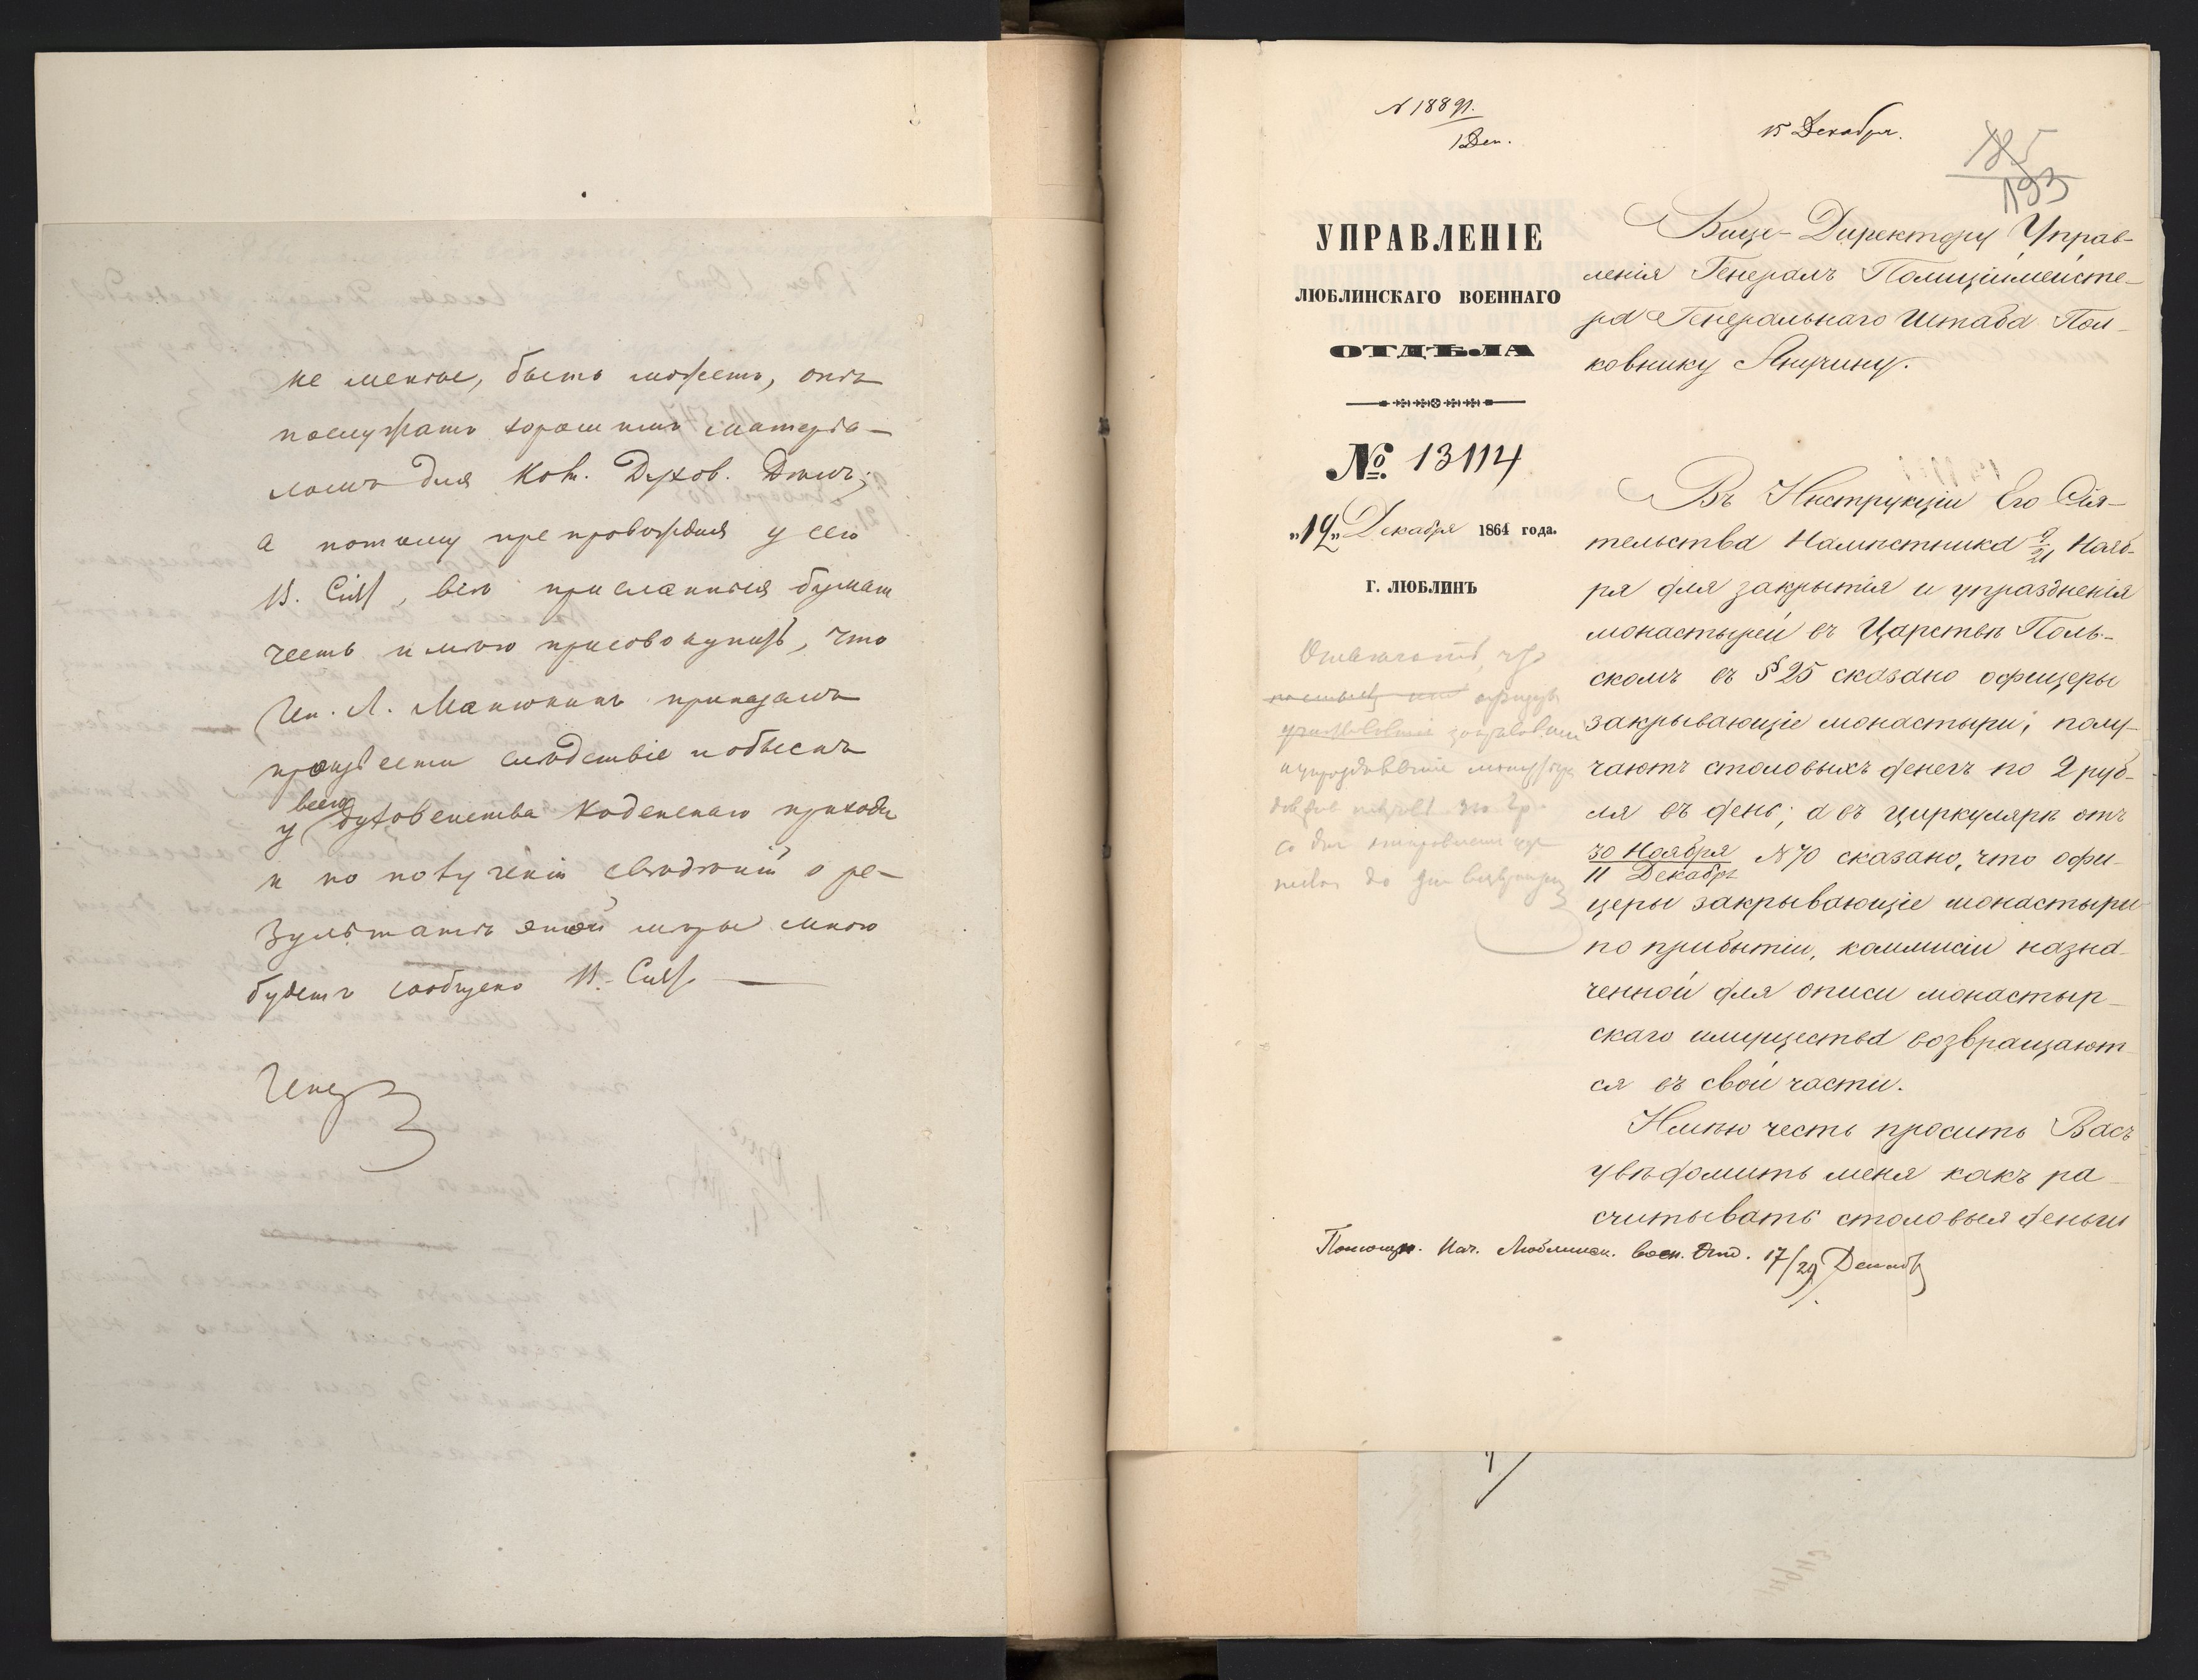 не менѣе, быть можетъ, онѣ
послужатъ хорошимъ матерiа-
ломъ для Ком. Духов. Дѣлъ;
а потому препровождая у сего
В. Сият, всѣ присланныя бумаги
честь имѣю присовокупить, что
Ген. Л. Манюкинъ приказалъ
произвести слѣдствіе и обыскъ
у всего духовенства Коденскаго прихода
и по полученіи свѣдѣній о ре-
зультатѣ этой мѣры мною
будетъ сообщено В. Сият.
Ген
N 18891.
1 Деп.
15 Декабря.
185
193
УПРАВЛЕНІЕ
ЛЮБЛИНСКАГО ВОЕННАГО
ОТДѢЛА
№ 13114
„12„ Декабря 1864 года.
Г. ЛЮБЛИНЪ
Вице-Директору Управ-
ленія Генералъ Полиціймейсте-
ра Генеральнаго Штаба Пол-
ковнику Янучину.
Въ Инструкціи Его Сія-
тельства Намѣстника 9/21 Нояб-
ря для закрытія и упраздненія
монастырей въ Царствѣ Поль-
скомъ въ § 25 сказано офицеры
закрывающіе монастыри, полу-
чаютъ столовыхъ денегъ по 2 руб-
ля въ день; а въ циркулярѣ отъ
30 Ноября
11 Декабря N 70 сказано, что офи-
церы закрывающіе монастыри
по прибытіи, коммисіи назна-
ченной для описи монастыр-
скаго имущества возвращают-
ся въ свои части.
Имѣю честь просить Васъ
увѣдомить меня какъ ра-
считывать столовыя деньги
Отвѣчать, что
офицеры
Помощн. Нач. Люблинск. Воен. Отд. 17/29 Декабр